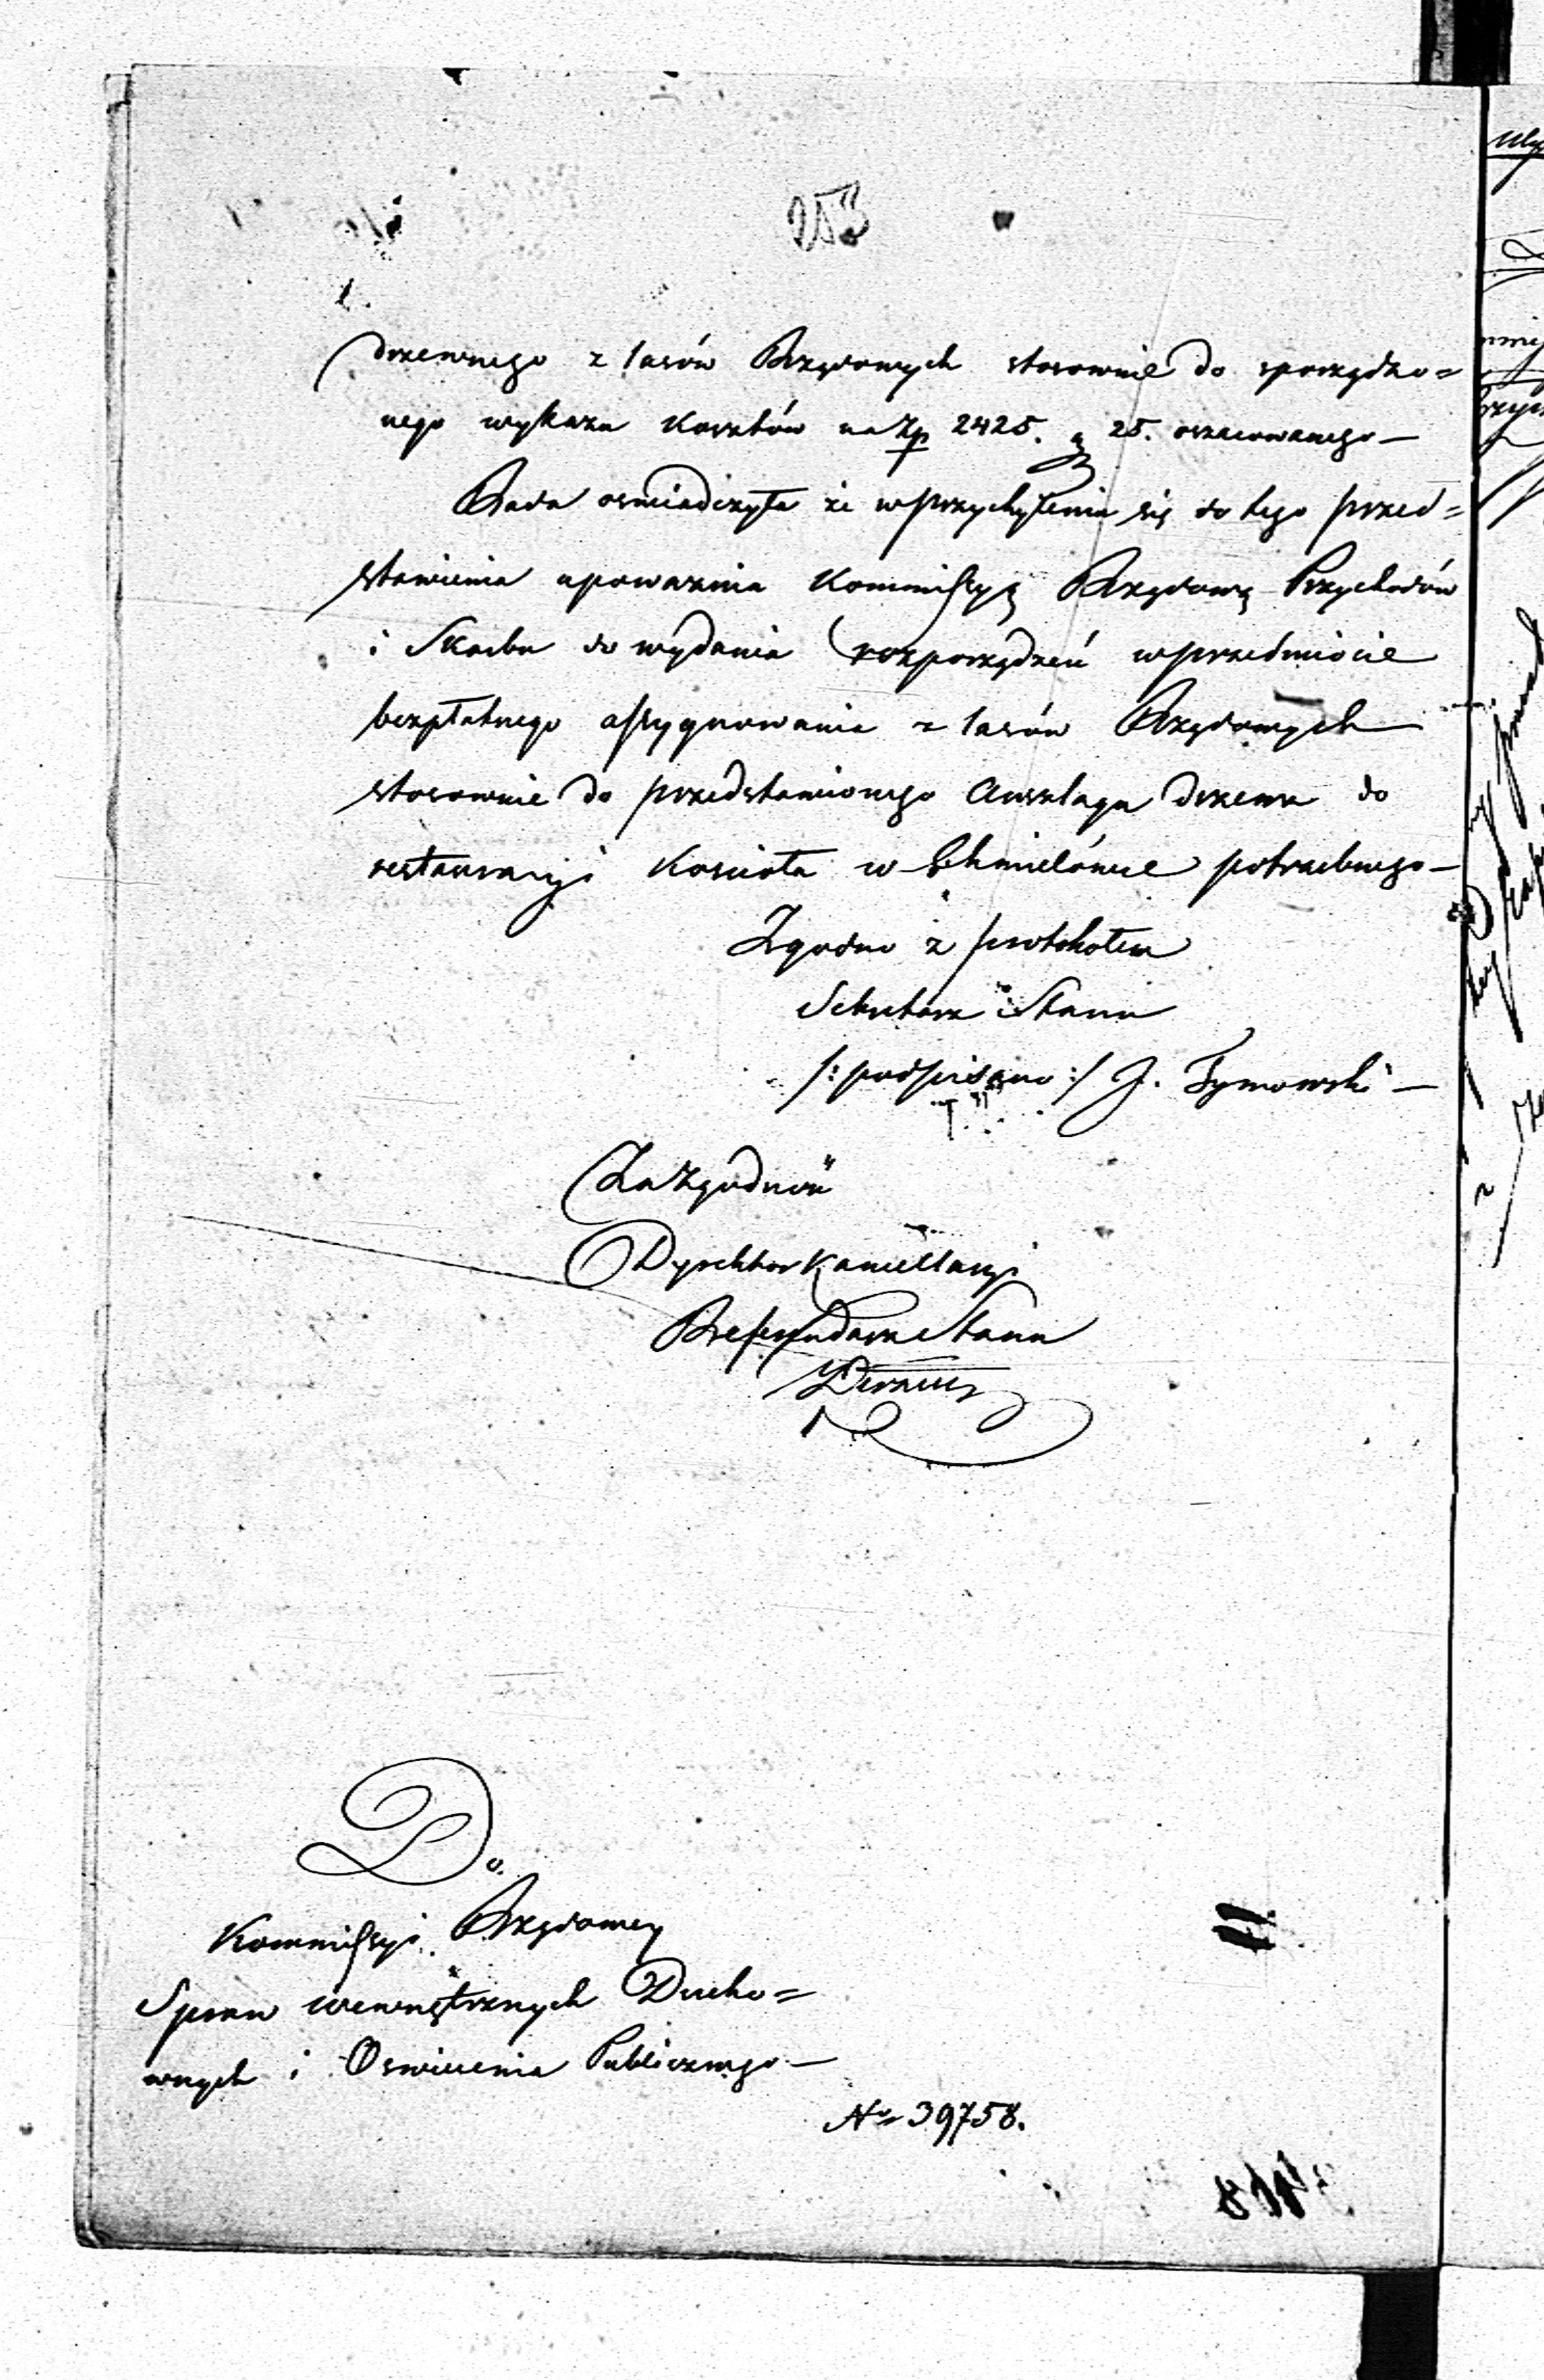 253
drzewnego z lasów Rządowych stosownie do sporządzo=
nego wykazu kosztów na Zp 2425. g 25. oszacowanego—
Rada oświadczyła że w przychyleniu się do tego przed=
stawienia upoważnia Kommissyą Rządową Przychodów
i Skarbu do wydania rozporządzeń w przedmiocie
bezpłatnego assygnowania z lasów Rządowych
stosownie do przedstawionego Anszlagu drzewa do
restauracyi Kościoła w Chmielówce potrzebnego—
Zgodno z protokołem
Sekretarz Stanu
/: podpisano :/ J. Tymowski —
Za Zgodność
Dyrektor Kancellaryi
Referendarz Stanu
Do.
Kommissyi Rządowey
Spraw wewnętrznych Ducho=
wnych i Oswiecenia Publicznego—
No 39758.